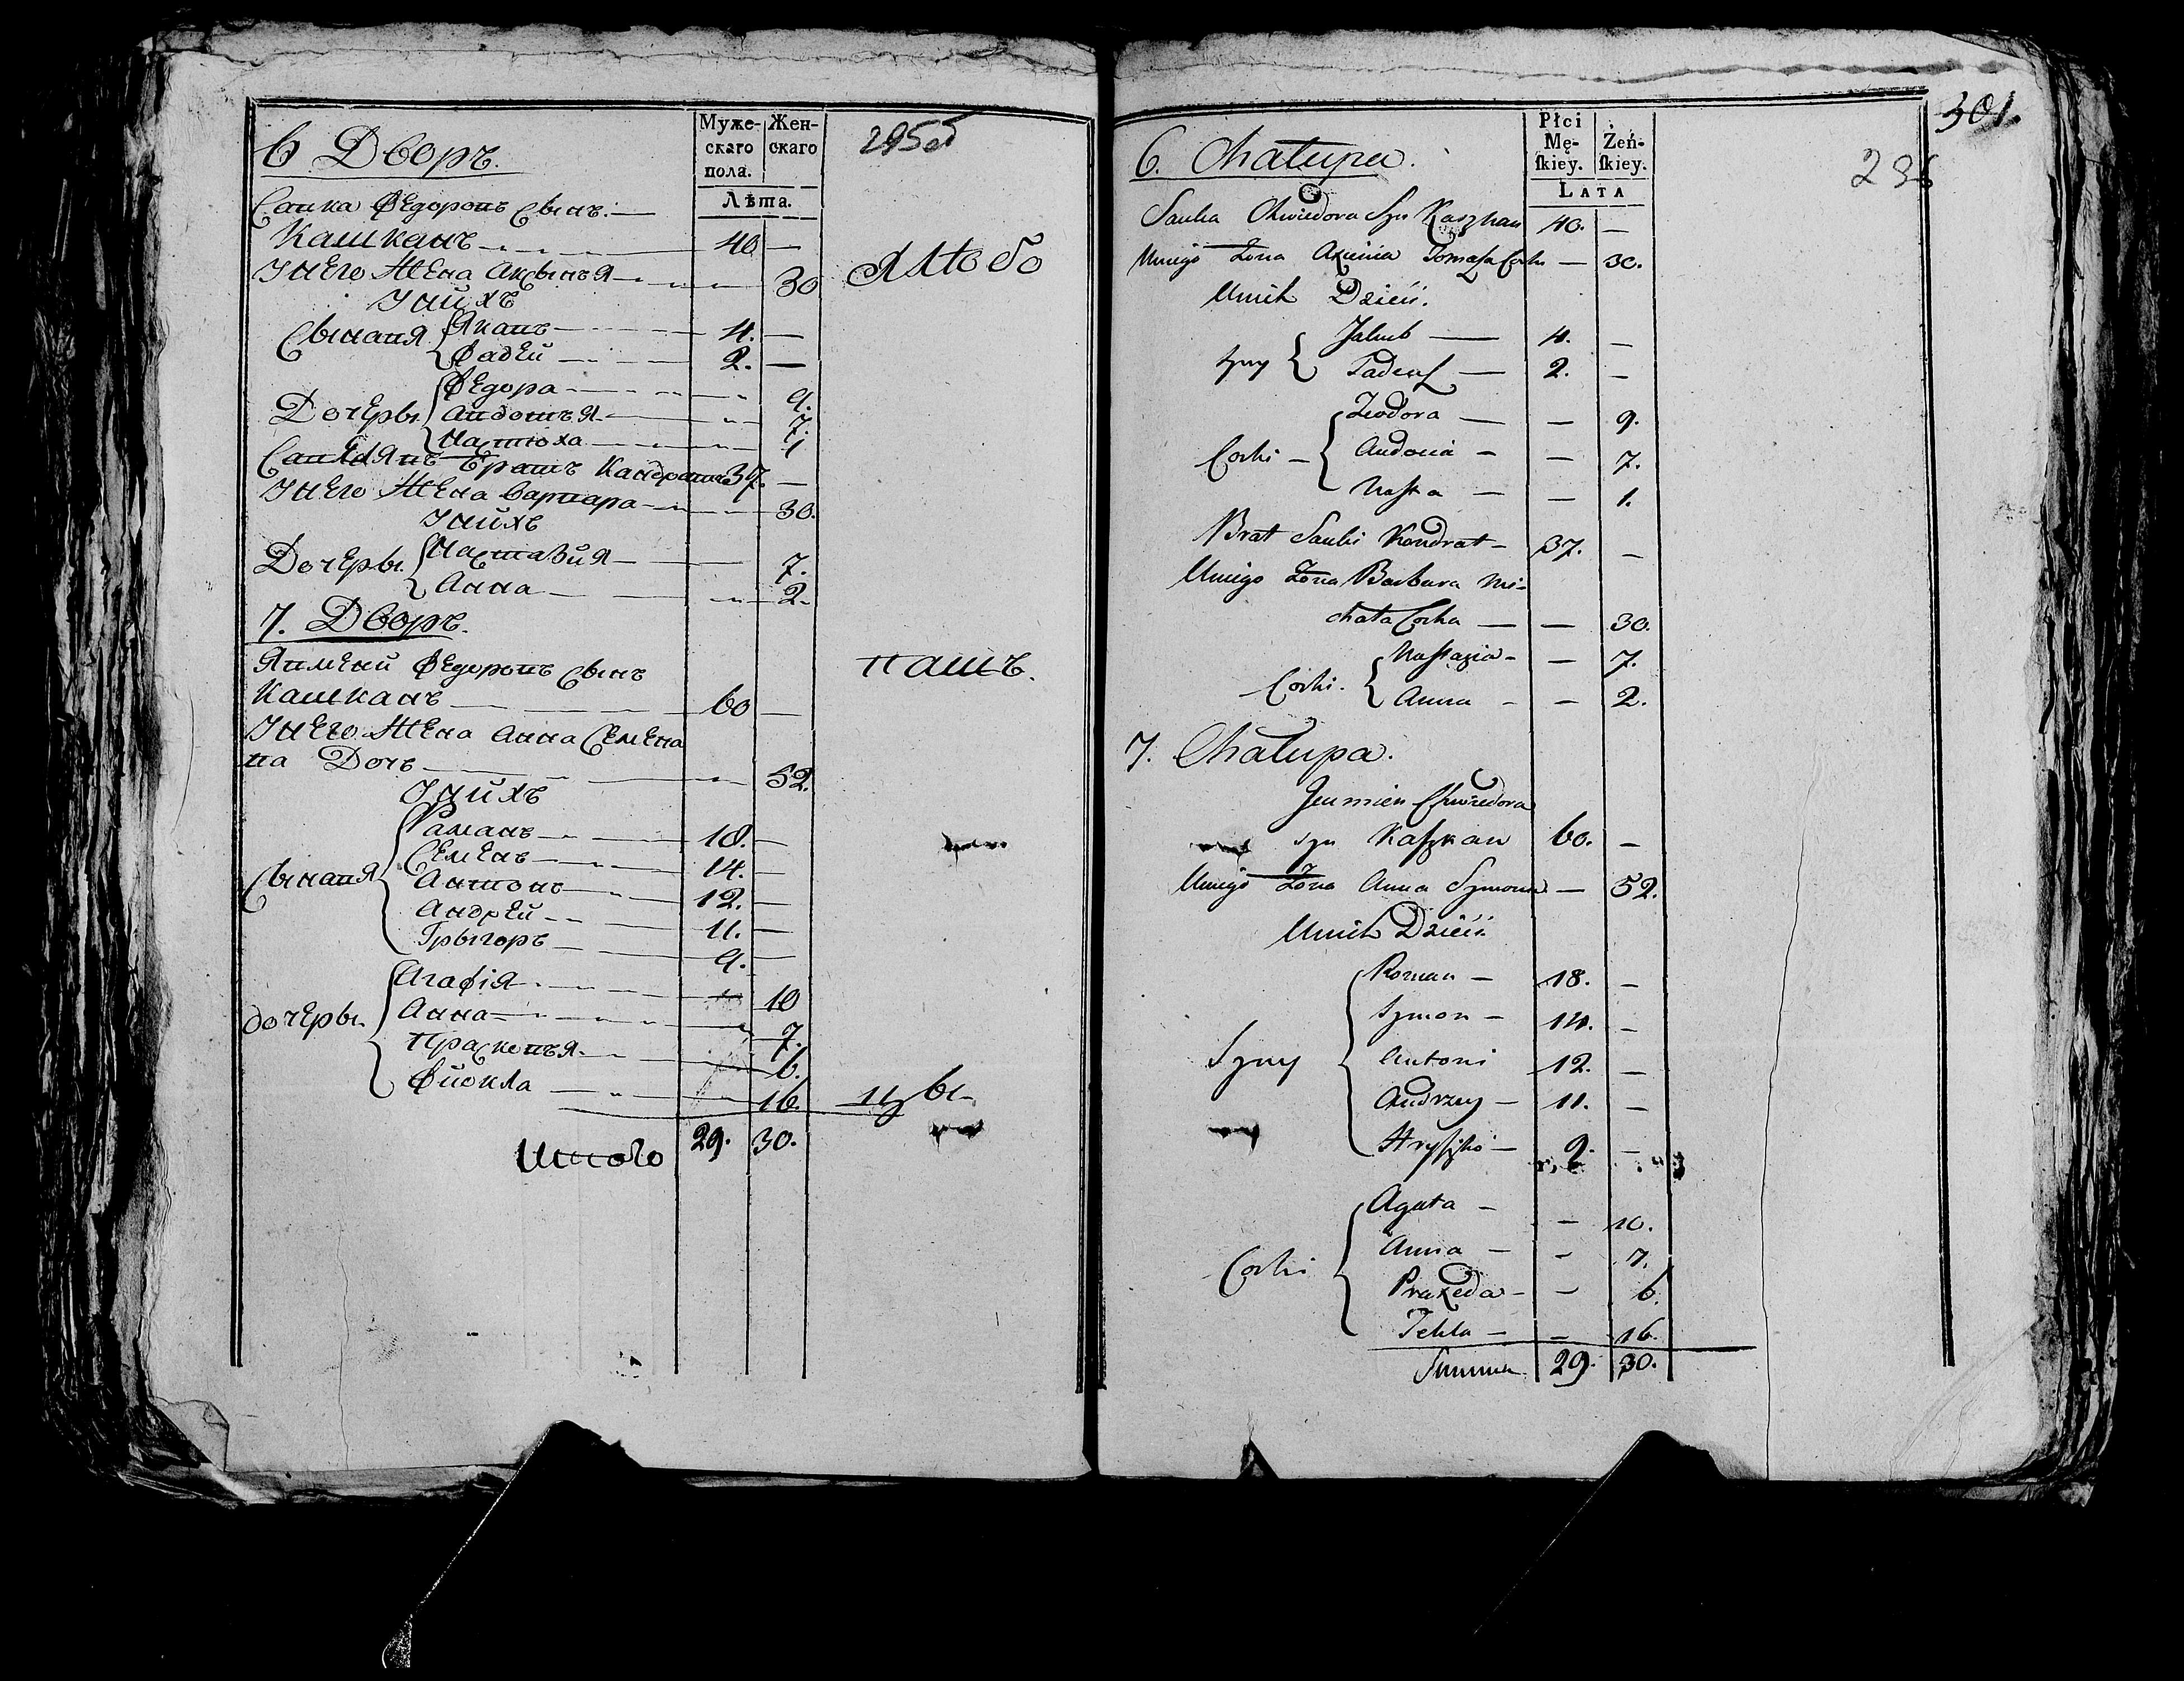 295об
Муже-
скаго
пола.
Жен-
скаго
Лѣта.
6 Дворъ.
Савка Федоровъ Сынъ. —
Кашканъ — 40 —
У него Жена Аксынья — 30
У нихъ
Сыновя { Яковъ — 4. —
Фадей — 2. —
Дочеры { Федора — 9.
Авдотъя — 7.
Настюха — 1
Савки братъ Кандратъ 37. —
У него Жена Варвара — 30.
У нихъ
Дочеры { Настазия — 7.
Анна — 2.
7. Дворъ.
Явмений Федоровъ Сынъ
Кашканъ — 60 —
У него Жена Анна Семена
ва Дочъ — 52.
У нихъ
Сыновя { Раманъ — 18. —
Семенъ — 14. —
Антонъ — 12. —
Андрей — 11. —
Грыгоръ — 9. —
дочеры { Агафія — 10
Анна — 7.
Праскевъя — 6.
Фиокла — 16.
Итого 29. 30.
301.
Płci
Mę-
ſkiey.
Żeń-
ſkiey.
LATA
6. Chałupa.
Sauka Chwiedora Syn Kaszkan 40. —
U niego Żona Axienia Tomasza Corka — 30.
U nich Dzieci.
Syny { Jakub — 4. —
Tadeusz — 2. —
Corki { Teodora — — 9.
Audocia — — 7.
Nasta — — 1.
Brat Sauki Kondrat — 37. —
U niego Żona Barbara Mi-
chała Corka — — 30.
Corki. { Nastazia — — 7.
Anna — — 2.
7. Chałupa.
Jeumien Chwiedora
Syn Kaszkan 60. —
U niego Żona Anna Symona — 52.
U nich Dzieci.
Syny { Roman — 18. —
Symon — 14. —
Antoni 12. —
Andrzey — 11. —
Hryszko — 9. —
Corki { Agata — — 10.
Anna — — 7.
Praxeda — — 6.
Tekla — — 16.
Summa 29. 30.